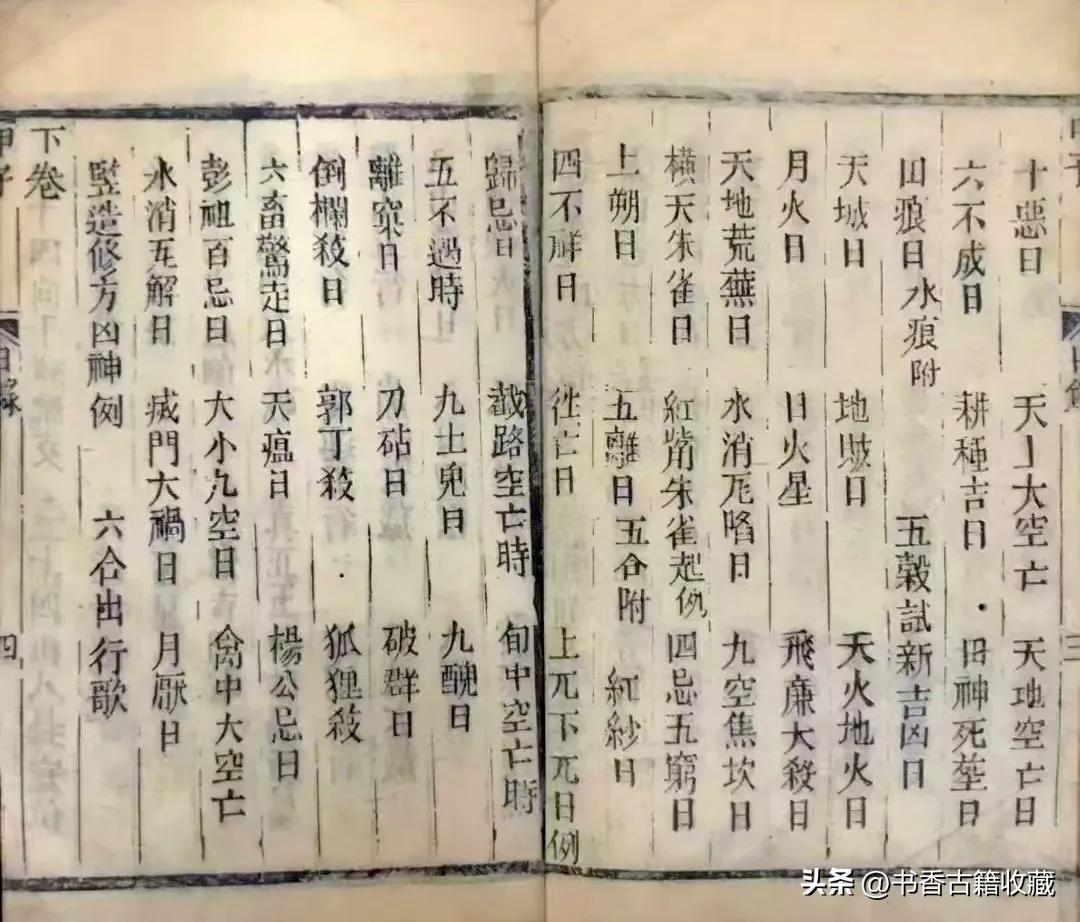 十惡日 天上大空亡 天地空亡日
六不成日 耕種吉日 田神死葬日
田狼日水痕附 五穀試新吉凶日
天城日 地賊日 天火地火日
月火日 日火星 飛廉大殺日
天地荒蕪日 水消瓦陷日 九空焦坎日
橫天朱雀日 紅嘴朱雀起例 四忌五窮日
上朔日 五離日五合附 紅紗日
四不祥日 往亡日 上兀下兀日例
歸忌日 截路空亡時 旬中空亡時
五不遇時 九土鬼日 九醜日
離窠日 刀砧日 破群日
倒欄殺日 郭丁殺 狐狸殺
六畜驚走日 天瘟日 楊公忌日
彭祖百忌日 大小九空日 禽中大空亡
水消瓦解日 滅門大禍日 月厭日
竪造修方凶神例 六合出行歌
下卷
目錄
四
三
头条 @书香古籍收藏